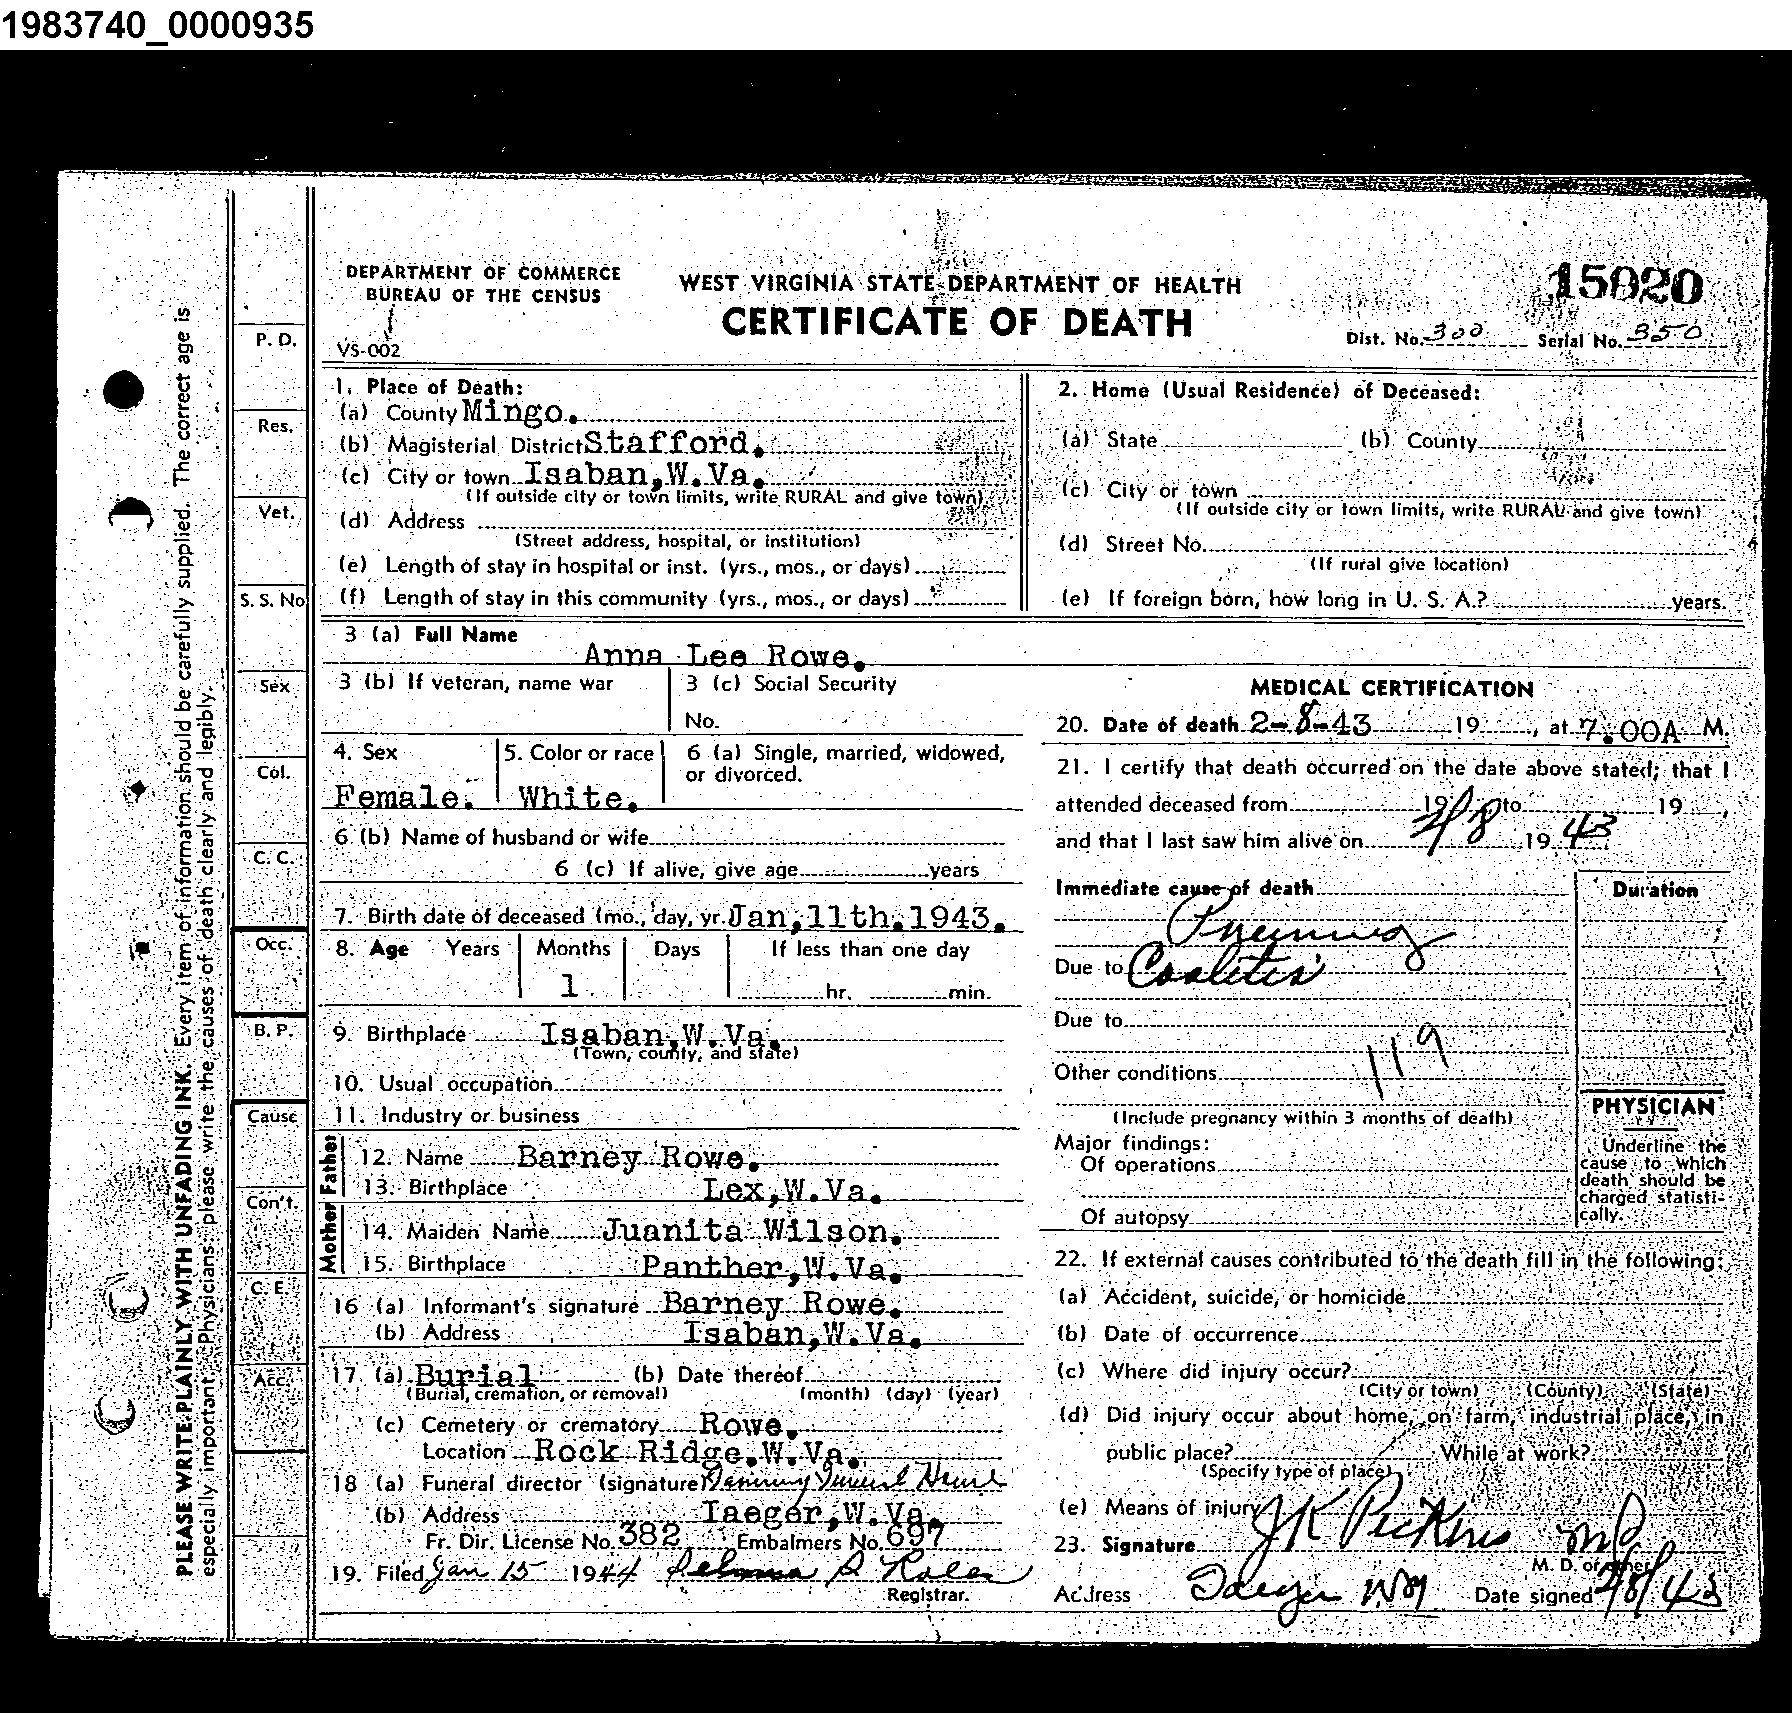 1983740_0000935
DEPARTMENT OF COMMERCE
BUREAU OF THE CENSUS
VS-002
WEST VIRGINIA STATE DEPARTMENT OF HEALTH
CERTIFICATE OF DEATH
15020
Dist. No. 300 Serial No. 350
PLEASE WRITE PLAINLY WITH UNFADING INK. Every item of information should be carefully supplied. The correct age is
especially important. Physicians: please write the causes of death clearly and legibly.
P. D.
Res.
Vet.
S. S. No
Sex
Col.
C. C.
Occ.
B. P.
Cause
Con't.
C. E.
Acc.
1. Place of Death:
(a) County Mingo.
(b) Magisterial District Stafford.
(c) City or town Isaban, W. Va.
(If outside city or town limits, write RURAL and give town)
(d) Address
(Street address, hospital, or institution)
(e) Length of stay in hospital or inst. (yrs., mos., or days)
(f) Length of stay in this community (yrs., mos., or days)
2. Home (Usual Residence) of Deceased:
(a) State (b) County
(c) City or town
(If outside city or town limits, write RURAL and give town)
(d) Street No.
(If rural give location)
(e) If foreign born, how long in U. S. A.? years.
3 (a) Full Name
Anna Lee Rowe.
3 (b) If veteran, name war
3 (c) Social Security
No.
4. Sex
Female.
5. Color or race
White.
6 (a) Single, married, widowed,
or divorced.
6 (b) Name of husband or wife
6 (c) If alive, give age years
7. Birth date of deceased (mo., day, yr. Jan, 11th. 1943.
8. Age Years Months Days If less than one day
1 hr. min.
9. Birthplace Isaban, W. Va.
(Town, county, and state)
10. Usual occupation
11. Industry or business
Father
12. Name Barney Rowe.
13. Birthplace Lex, W. Va.
Mother
14. Maiden Name Juanita Wilson.
15. Birthplace Panther, W. Va.
16 (a) Informant's signature Barney Rowe.
(b) Address Isaban, W. Va.
17 (a) Burial (b) Date thereof
(Burial, cremation, or removal) (month) (day) (year)
(c) Cemetery or crematory Rowe.
Location Rock Ridge. W. Va.
18 (a) Funeral director (signature) Funeral Home
(b) Address Iaeger, W. Va.
Fr. Dir. License No. 382 Embalmers No. 697
19. Filed Jan 15 1944
Registrar.
MEDICAL CERTIFICATION
20. Date of death 2-8-43 19 , at 7:00A M.
21. I certify that death occurred on the date above stated; that I
attended deceased from 19 to 19 ,
and that I last saw him alive on 2/8 19 43
Immediate cause of death
Duration
Due to
Due to
119
Other conditions
(Include pregnancy within 3 months of death)
Major findings:
Of operations
Of autopsy
PHYSICIAN
Underline the
cause to which
death should be
charged statisti-
cally.
22. If external causes contributed to the death fill in the following:
(a) Accident, suicide, or homicide
(b) Date of occurrence
(c) Where did injury occur?
(City or town) (County) (State)
(d) Did injury occur about home, on farm, industrial place, in
public place? While at work?
(Specify type of place)
(e) Means of injury
23. Signature JK Peckins MD
M. D. or other
Address Iaeger WV Date signed 2/8/43